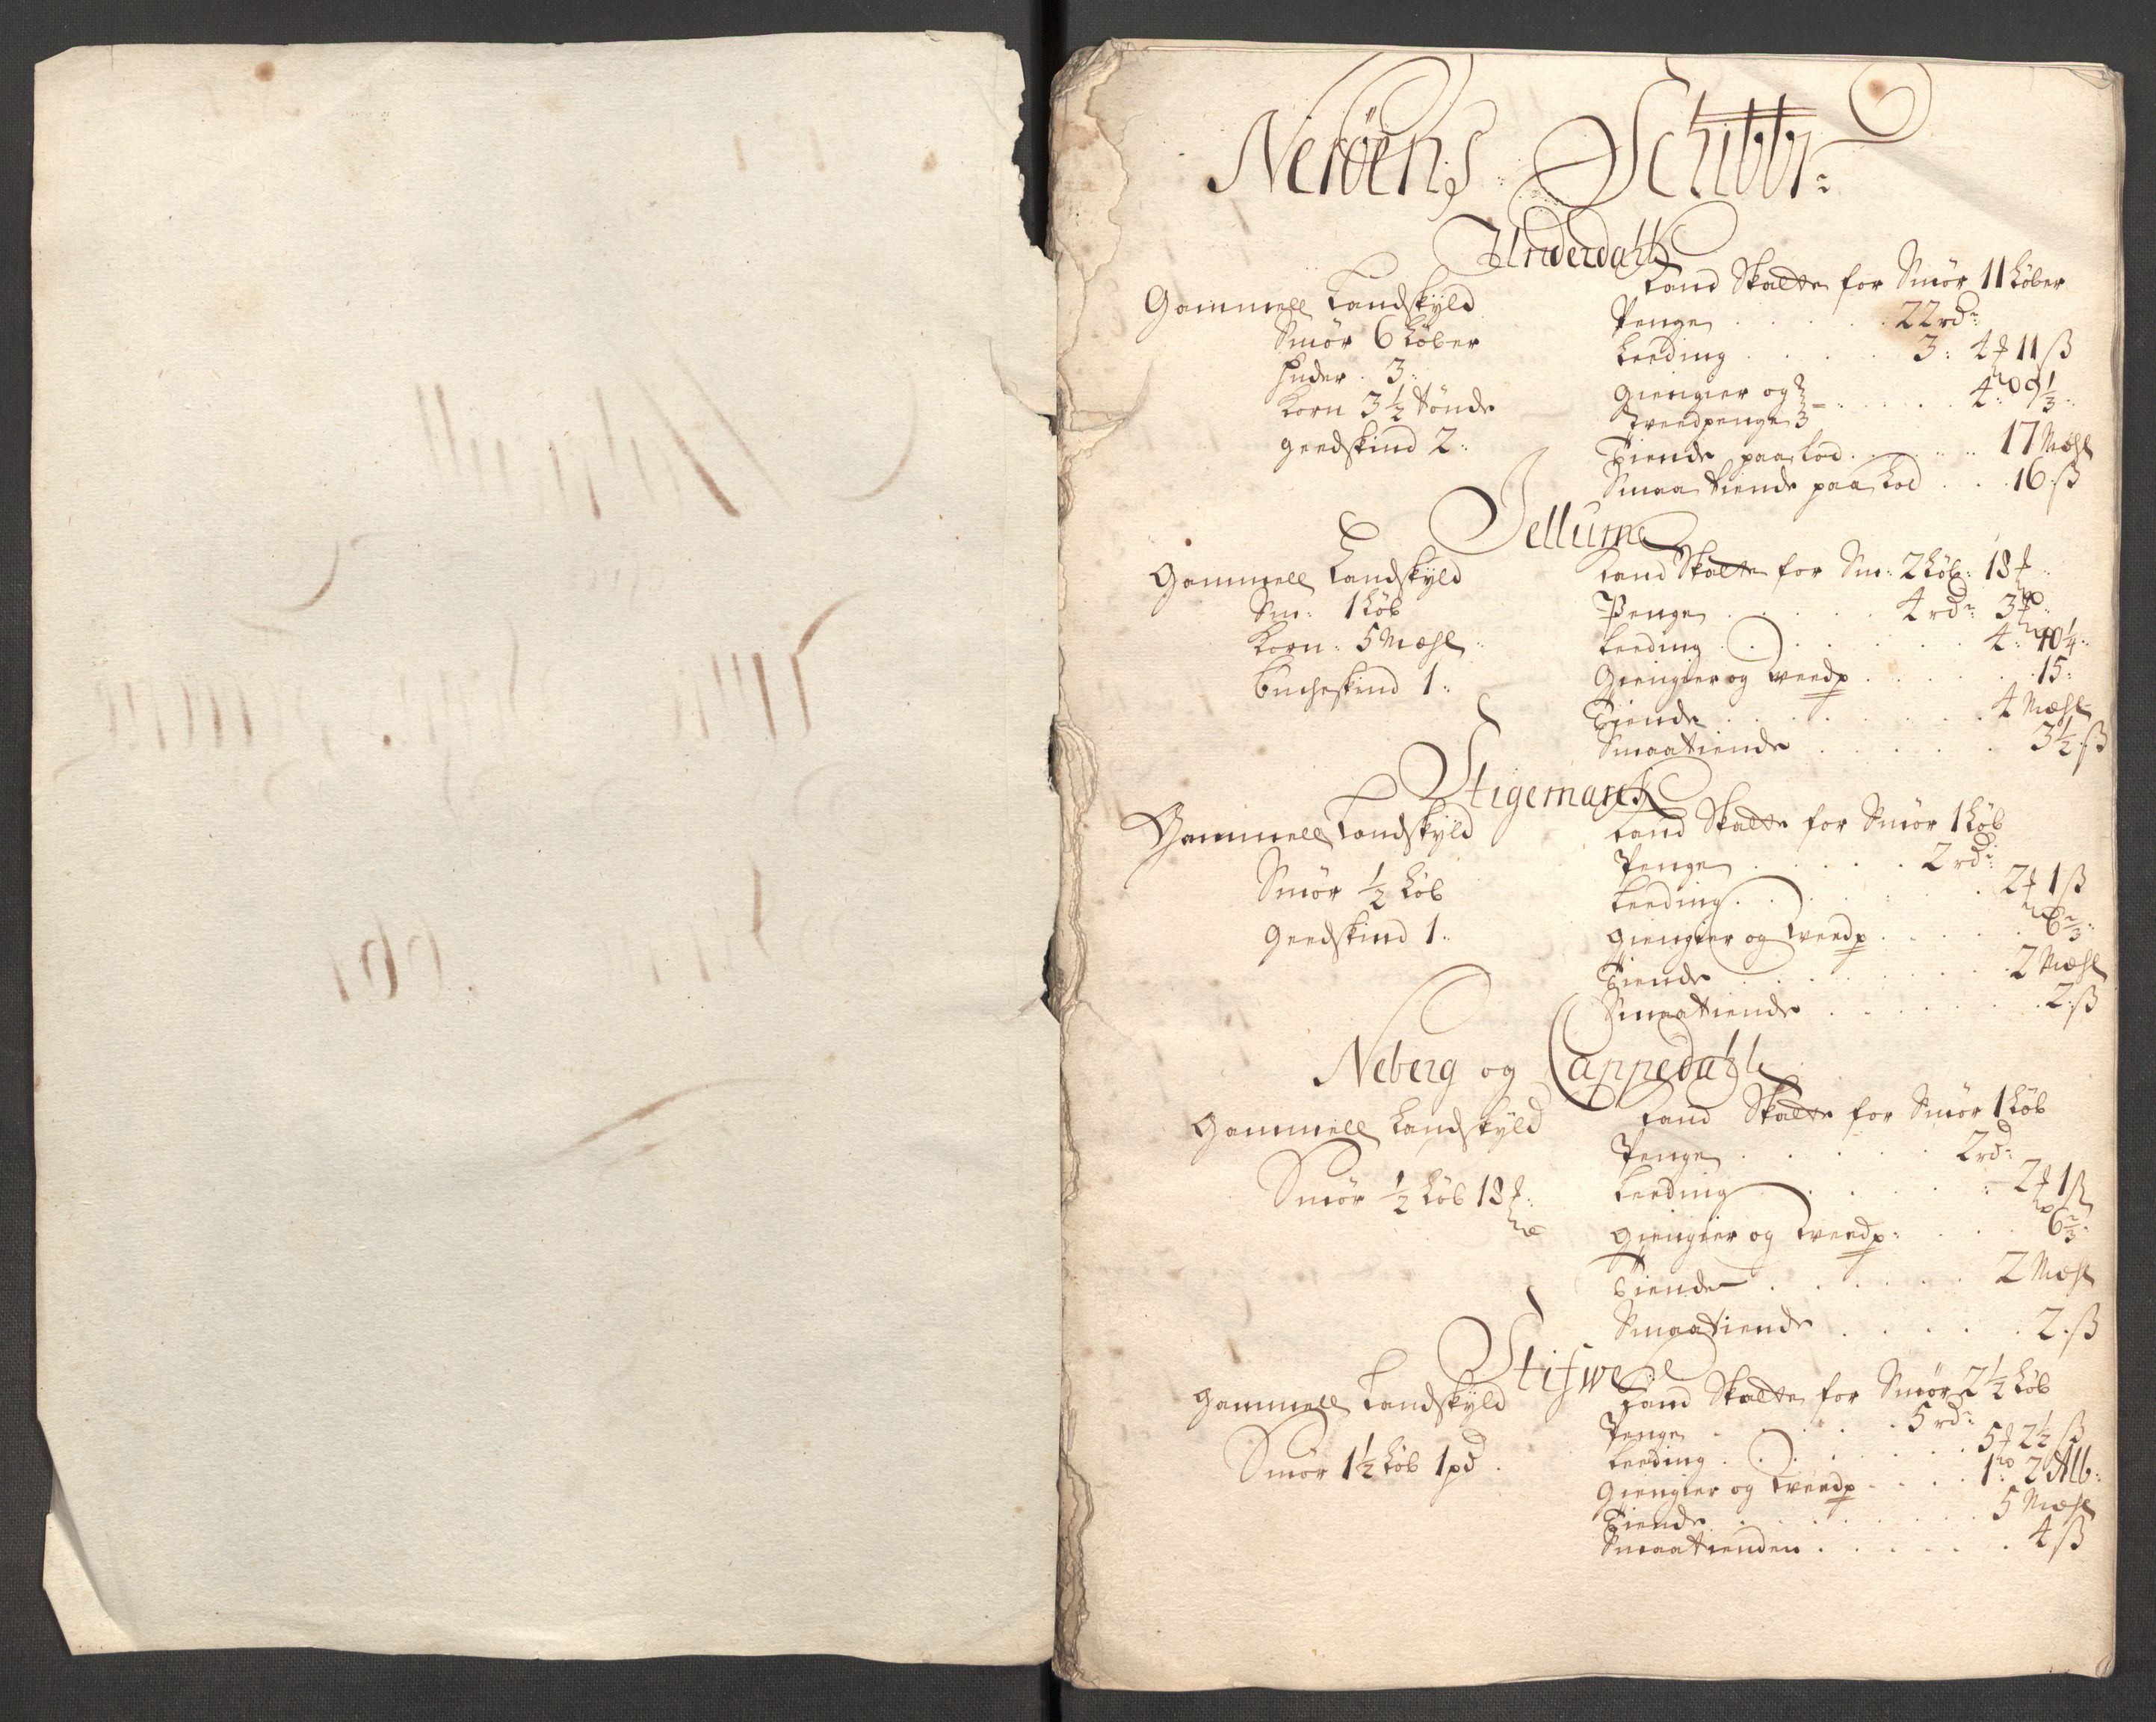 Nerøens Schibbr:
Underdahl
Gammell Landskyld
Smør 6 Løber
Huder . 3:
Korn 3½ tønde
geedskind 2:
Land Skatte for Smør 11 Løber
Penge . . . . . 22 rdr:
Leeding . . . . 3: 4 ƒ 11 ß
Giengier og
tveedpenge . . . . 4 mk 9⅓
Tiende paa Lod . . . . . 17 Mæhl
Smaa tiende paa Lod . . . 16 ß
Jellum
Gammell Landskyld
Sm: 1 Løb
Korn: 5 Mæhl
Bucheskind 1:
Land Skatte for Sm: 2 Løb: 18 mk
Penge . . . . . 4 rdr: 3 mk
Leeding . . . . . . 4: 10¼
Giengier og tveedp . . . . . . 15:
Tiende . . . . . . . . 4 Mæhl
Smaatiende . . . . . . 3½ ß
Stigemarck
Gammell Landskyld
Smør ½ Løb
Geedskind 1:
Land Skatte for Smør 1 Løb
Penge . . . . . 2 rdr:
Leeding . . . . . . 2 ƒ 1 ß
Giengier og tveedp . . . . . 6⅔
Tiende . . . . . . . 2 Mæhl
Smaatiende . . . . . . . 2 ß
Neberg og Cappedahl
Gammell Landskyld
Smør ½ Løb 18 mk
Land Skatte for Smør 1 Løb
Penge . . . . . 2 rd:
Leeding . . . . . . 2 ƒ 1 ß
Giengier og tveedp: . . . . 6⅔
Tiende . . . . . . 2 Mæhl
Smaatiende . . . . . 2 ß
Stifwe
Gammell Landskyld
Smør 1½ Løb 1 pd
Land Skatte for Smør 2½ Løb
Penge . . . . . 5 rdr:
Leeding . . . . . . . 5 ƒ 2½ ß
Giengier og tveedp . . . . 1 mk 2 Alb:
Tiende . . . . . . . . 5 Mæhl
Smaatienden . . . . . 4 ß